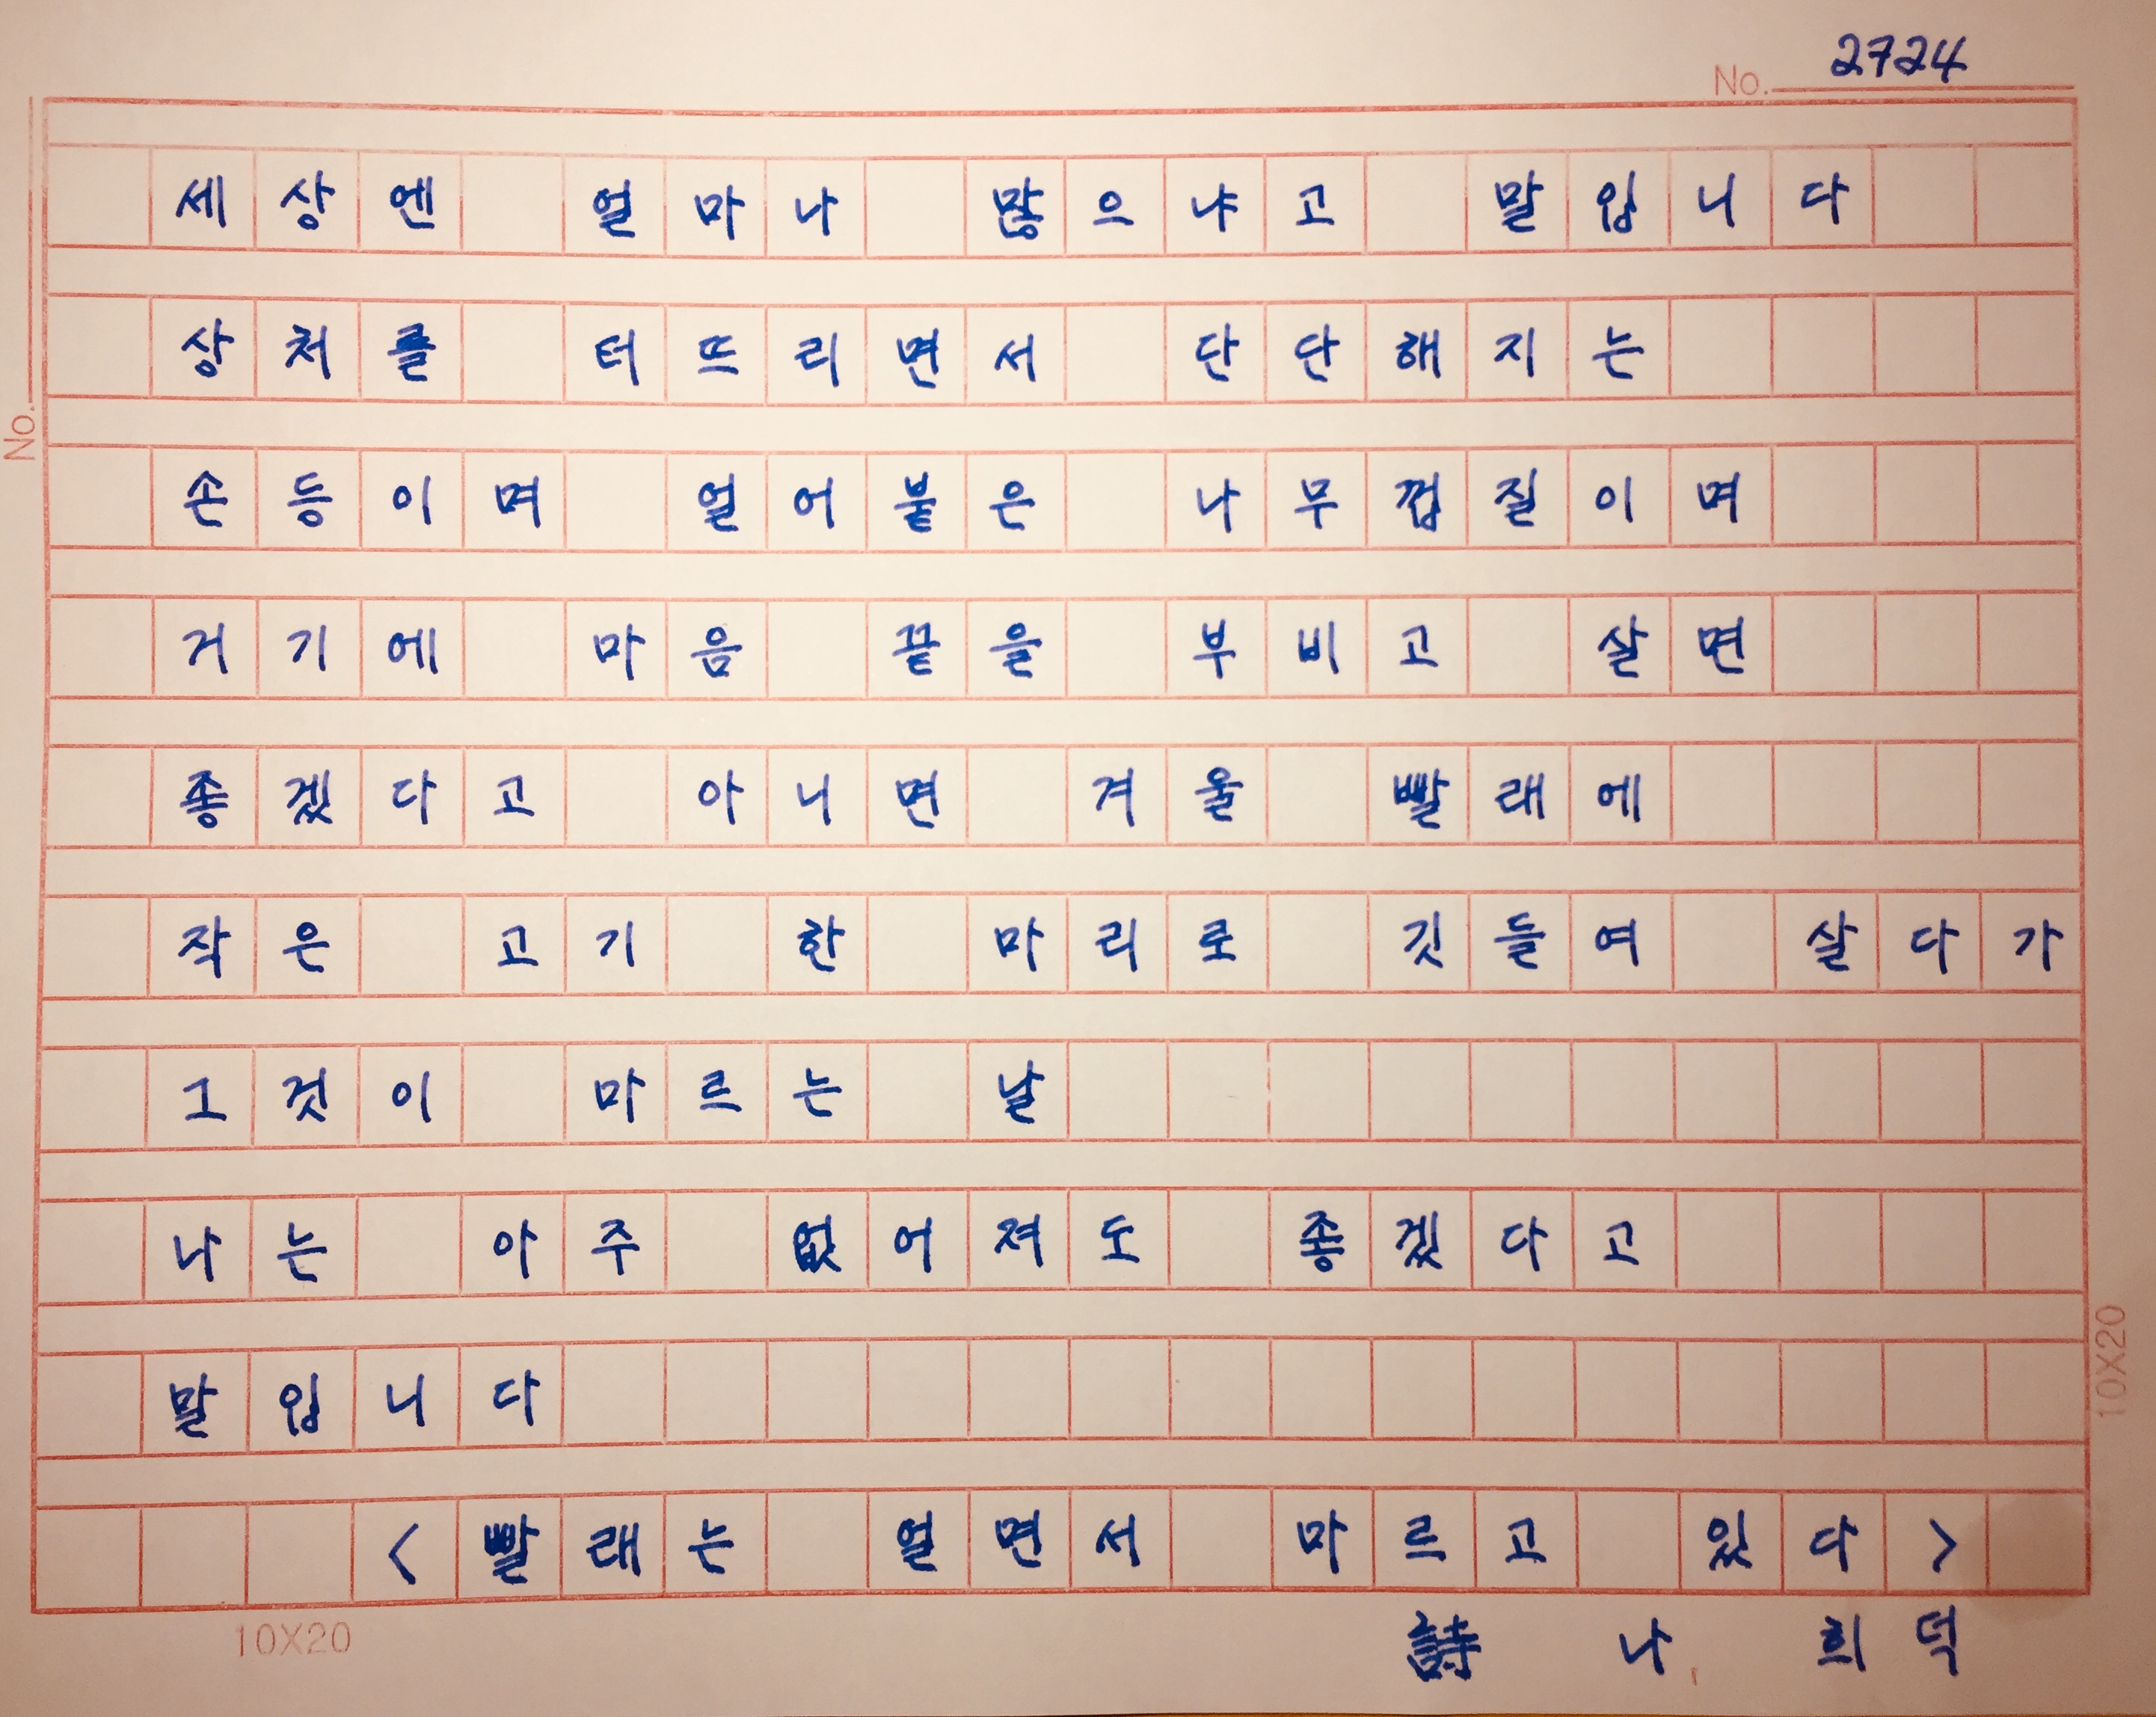 No. 2724
세상엔 얼마나 많으냐고 말입니다
상처를 터뜨리면서 단단해지는
손등이며 얼어붙은 나무껍질이며
거기에 마음 끝을 부비고 살면
좋겠다고 아니면 겨울 빨래에
작은 고기 한 마리로 깃들여 살다가
그것이 마르는 날
나는 아주 없어져도 좋겠다고
말입니다
<빨래는 얼면서 마르고 있다>
詩 나 희덕
No.
10X20
10X20